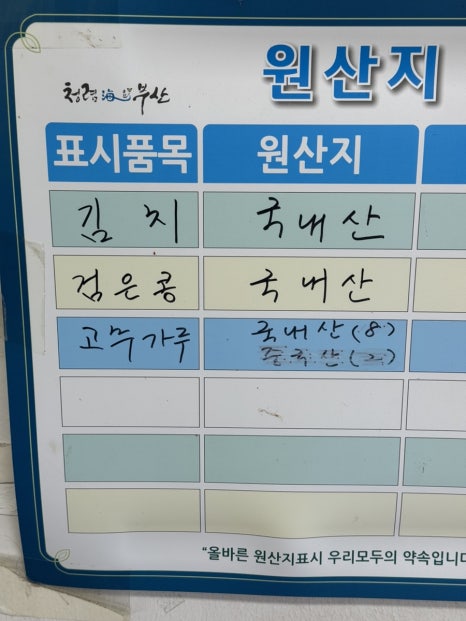 청렴海요 부산
원산지
표시품목 원산지
김치 국내산
검은콩 국내산
고추가루 국내산(8)
중국산(2)
"올바른 원산지표시 우리모두의 약속입니다